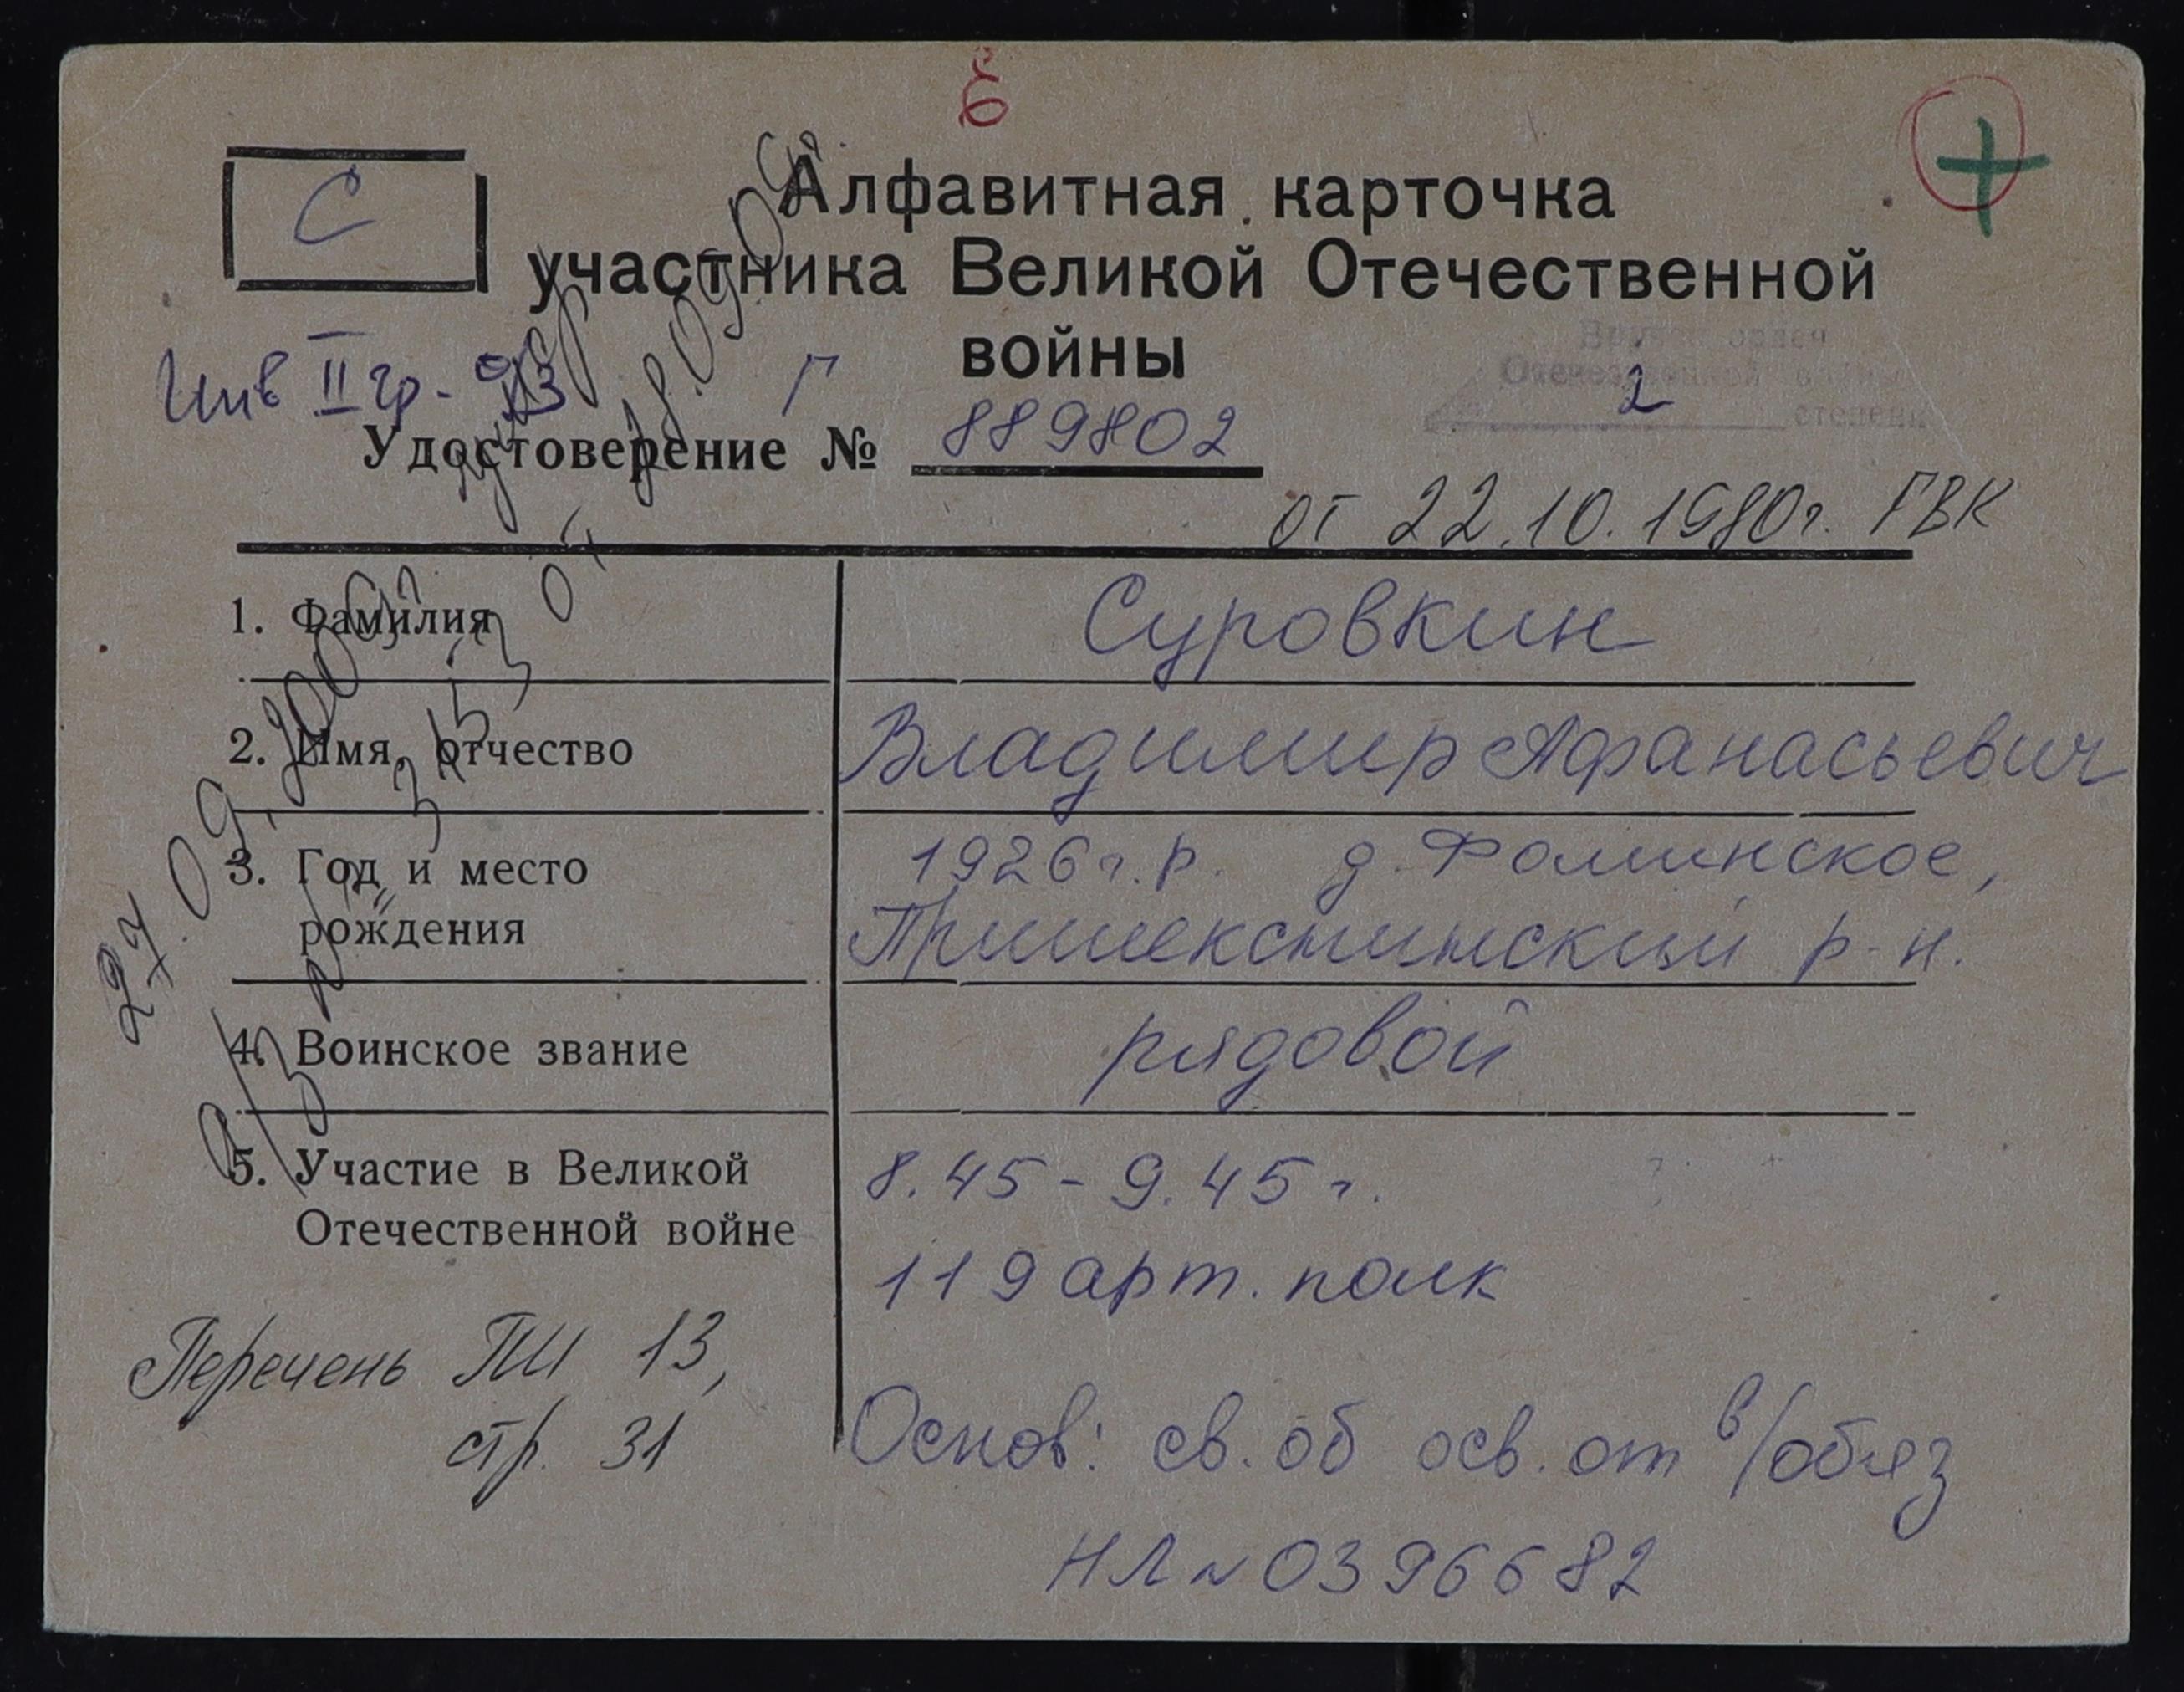 С
Алфавитная карточка
участника Великой Отечественной
войны
Вручен орден
Отечественной войны
2 степени
Инв II гр - 93 Г
Удостоверение № 889802
от 22.10.1980г. ГВК
1. Фамилия Суровкин
2. Имя, отчество Владимир Афанасьевич
3. Год и место рождения 1926 г.р. д. Фоминское,
Пришекснинский р-н.
4. Воинское звание рядовой
5. Участие в Великой Отечественной войне 8.45 - 9.45 г.
119 арт. полк
Перечень ПШ 13,
стр. 31
Основ: св. об осв. от в/обяз
НЛ № 0396682
умер
от 18.09.